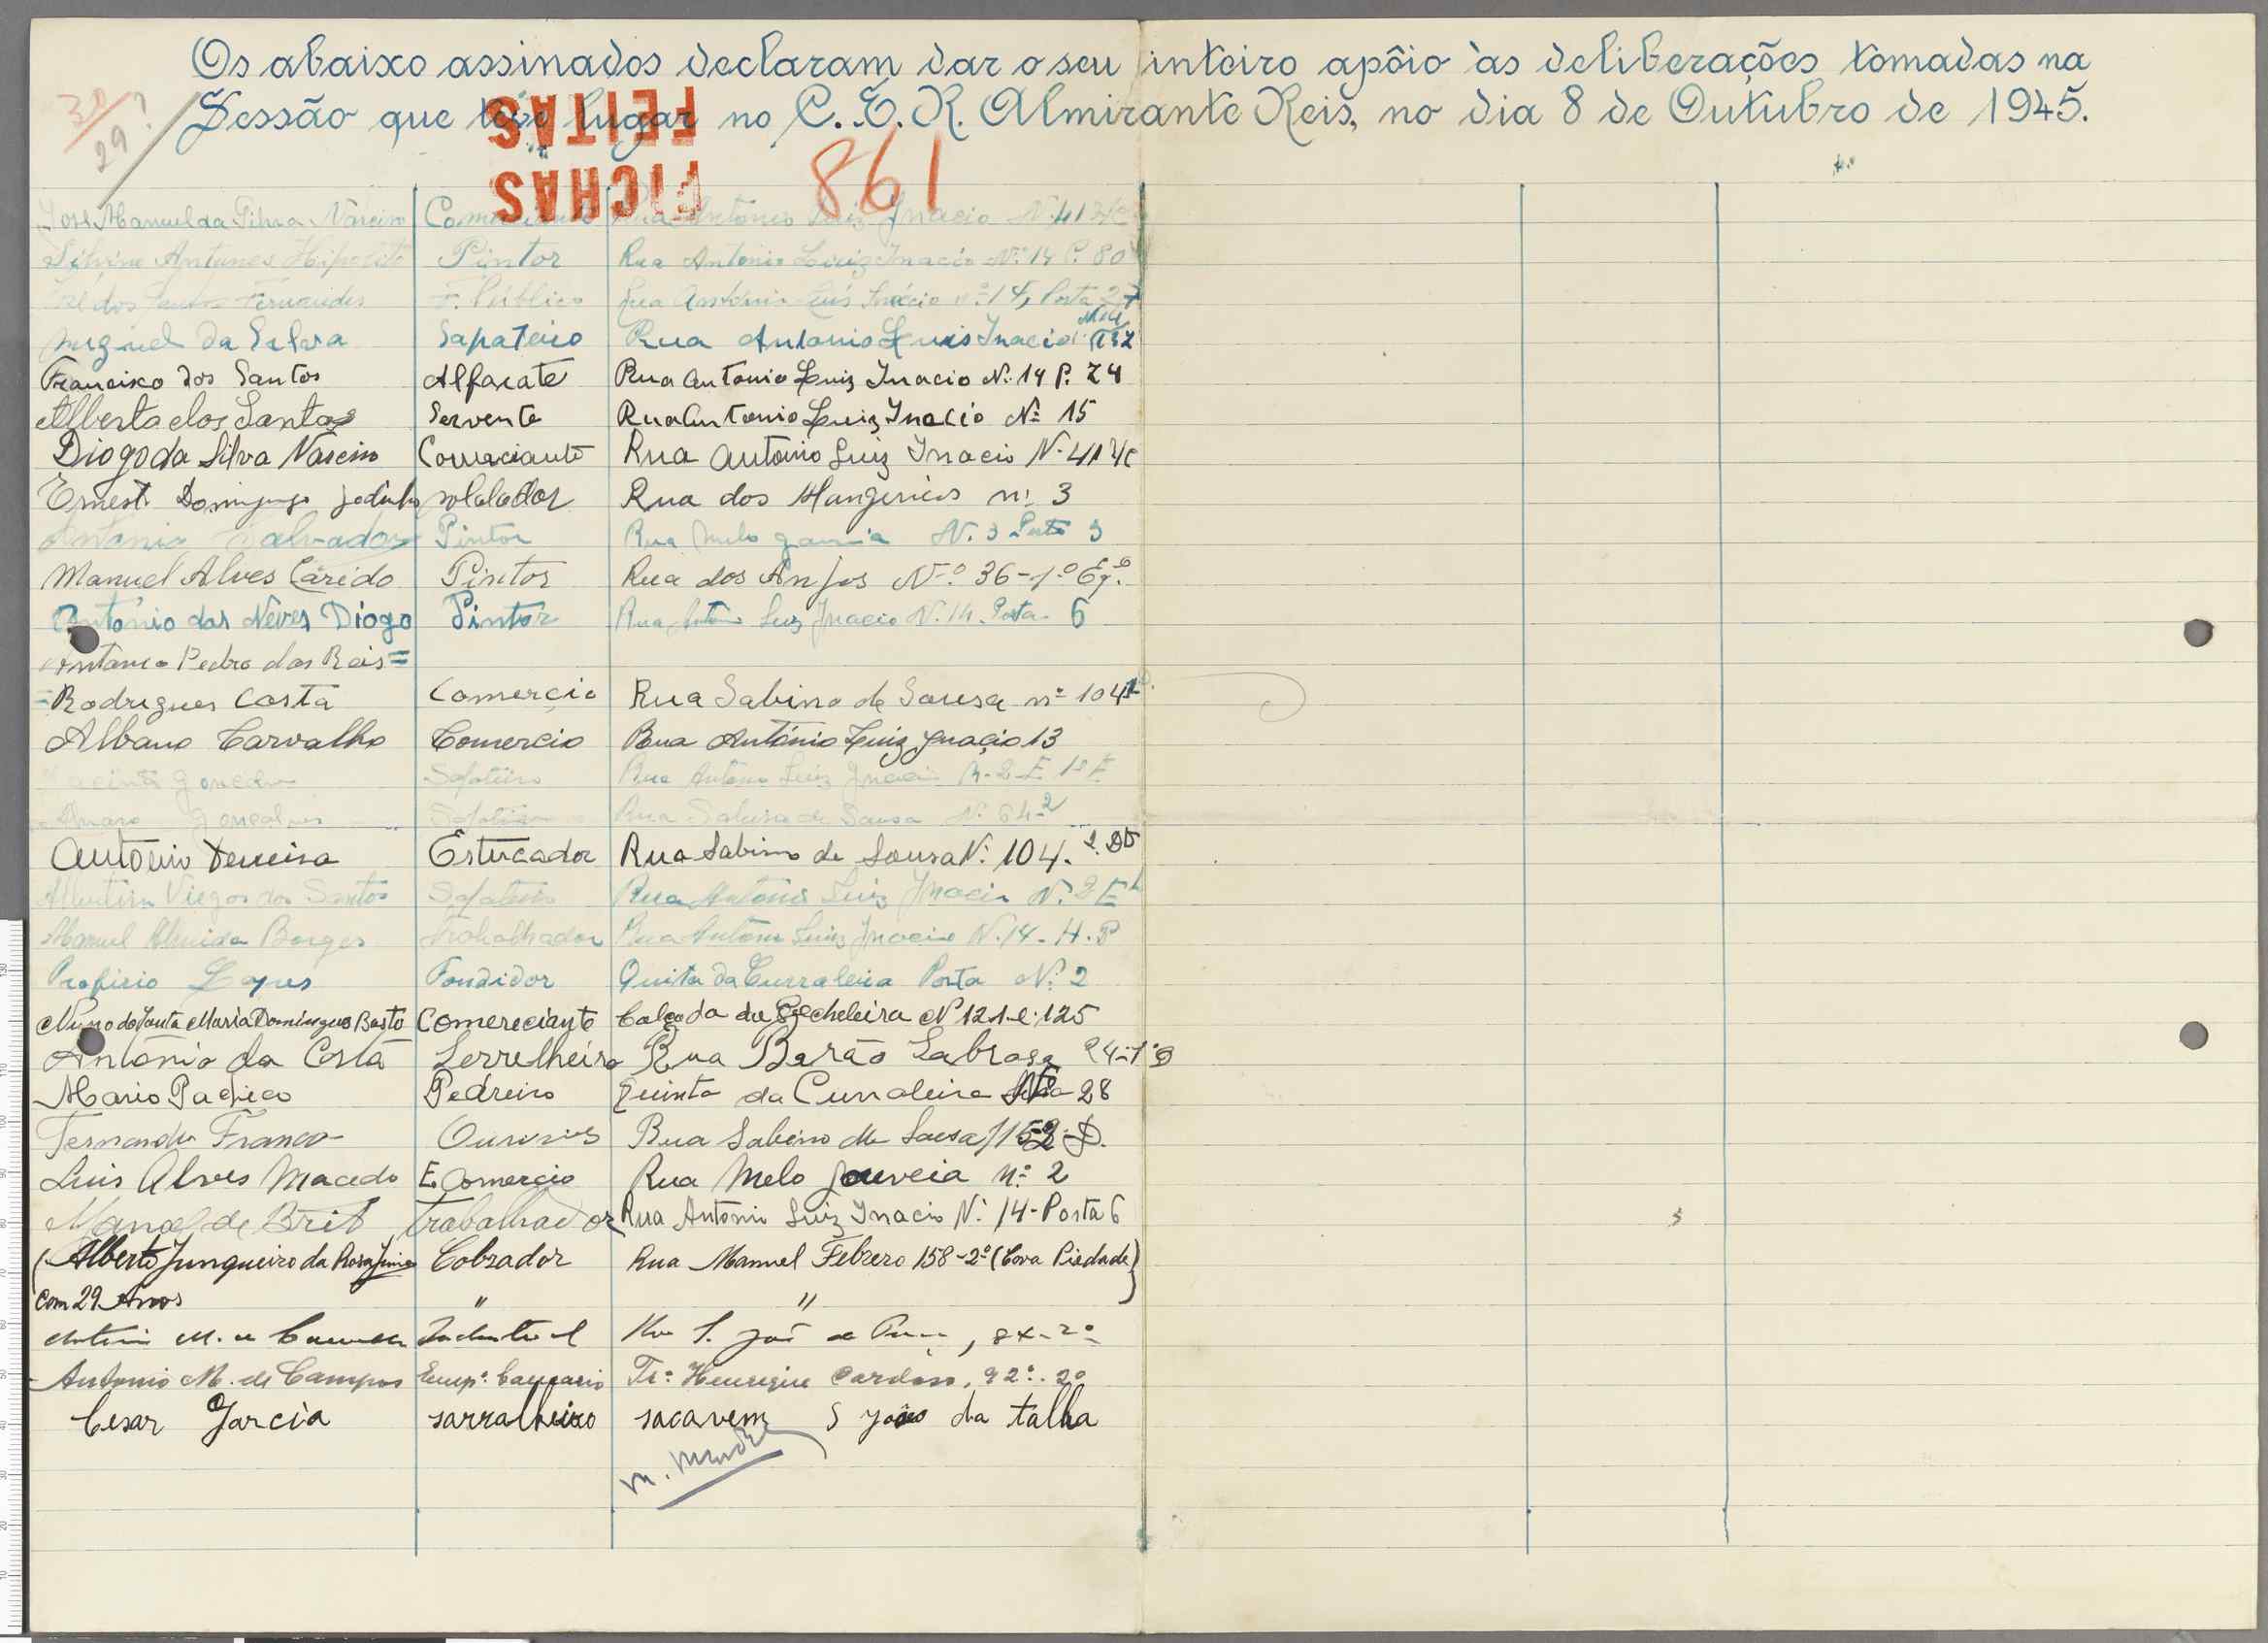 Os abaixo assinados declaram dar o seu inteiro apôio às deliberações tomadas na
Sessão que teve lugar no C.E.R. Almirante Reis, no dia 8 de Outubro de 1945.
30/29?
FICHAS FEITAS
861
José Manuel da Silva Narciso Comerciante Rua António Luiz Inacio Nº 41 2/c
Silvino Antunes Hipolito Pintor Rua Antonio Luiz Inacio Nº 14 P. 80
José dos Santos Fernandes F. Público Rua António Luís Inácio nº 14, Porta 27
Miguel da Silva Sapateiro Rua Antonio Luis Inacio
Francisco dos Santos Alfaiate Rua Antonio Luiz Inacio Nº 14 P. 24
Alberto dos Santos Servente Rua Antonio Luiz Inacio Nº 15
Diogo da Silva Narciso Comerciante Rua Antonio Luiz Inacio N. 41 2/c
Ernest. Domingos soldador Rua dos nº 3
Antonio Salvador Pintor Rua Melo N. 3 Porta 3
Manuel Alves Carido Pintor Rua dos Anjos Nº 36-1º Eq.
António das Neves Diogo Pintor Rua Antonio Luiz Inacio N. 14. Porta 6
Antonio Pedro dos Reis=
=Rodrigues Costa Comercio Rua Sabino de Sousa nº 104
Albano Carvalho Comercio Rua António Luiz Inacio 13
Jacinto Gonçalves Sapateiro Rua Antonio Luiz Inacio N. 2 E 1º E
Alvaro Gonçalves Sapateiro Rua Sabino de Sousa N. 64-2
António Ferreira Estucador Rua Sabino de Sousa N. 104.
Albertino Viegas dos Santos Sapateiro Rua Antonio Luiz Inacio N. 2 E
Manuel Almeida Borges Trabalhador Rua Antonio Luiz Inacio N. 14-H.P
Profirio Lopes Fondidor Quita da Curraleira Porta Nº 2
Nuno da Santa Maria Domingues Basto Comereciante Calçada da Picheleira Nº 121-e-125
António da Costa Serrelheiro Rua Barão Sabrosa 24-1º D
Mario Pacheco Pedreiro Quinta da Curraleira 28
Fernando Franco Ourives Rua Sabino de Sousa
Luis Alves Macedo E. Comercio Rua Melo Gouveia nº 2
Manoel de Brit Trabalhador Rua Antonio Luiz Inacio Nº 14-Porta 6
(Alberto Junqueiro da Rosa Cobrador Rua Manuel Febrero 158-2º (Cova Piedade)
com 29 Anos " "
Industrial
Antonio M. de Campos Empº. bancario Trª Henrique Cardoso, 92º-2º
Cesar Garcia sarralheiro sacavem S João da talha